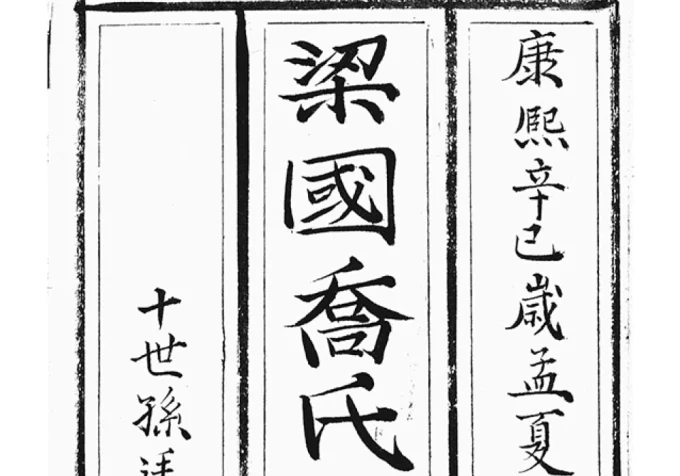 康熙辛巳歳孟夏
梁國喬氏
十世孫